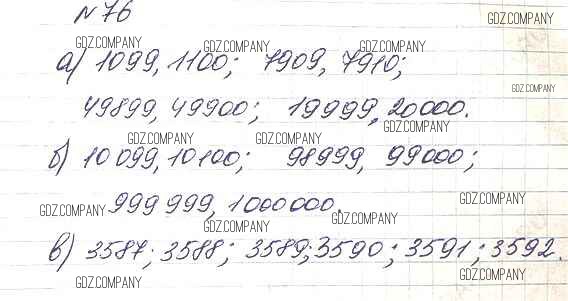 № 76
GDZ.COMPANY
GDZ.COMPANY GDZ.COMPANY GDZ.COMPANY
а) 1099, 1100; 7909, 7910;
GDZ.COMPANY
49899, 49900; 19999, 20000.
GDZ.COMPANY GDZ.COMPANY GDZ.COMPANY
б) 10099, 10100; 98999, 99000;
GDZ.COMPANY
999 999, 1000000.
GDZ.COMPANY GDZ.COMPANY GDZ.COMPANY
GDZ.COMPANY
в) 3587; 3588; 3589; 3590; 3591; 3592.
GDZ.COMPANY GDZ.COMPANY GDZ.COMPANY